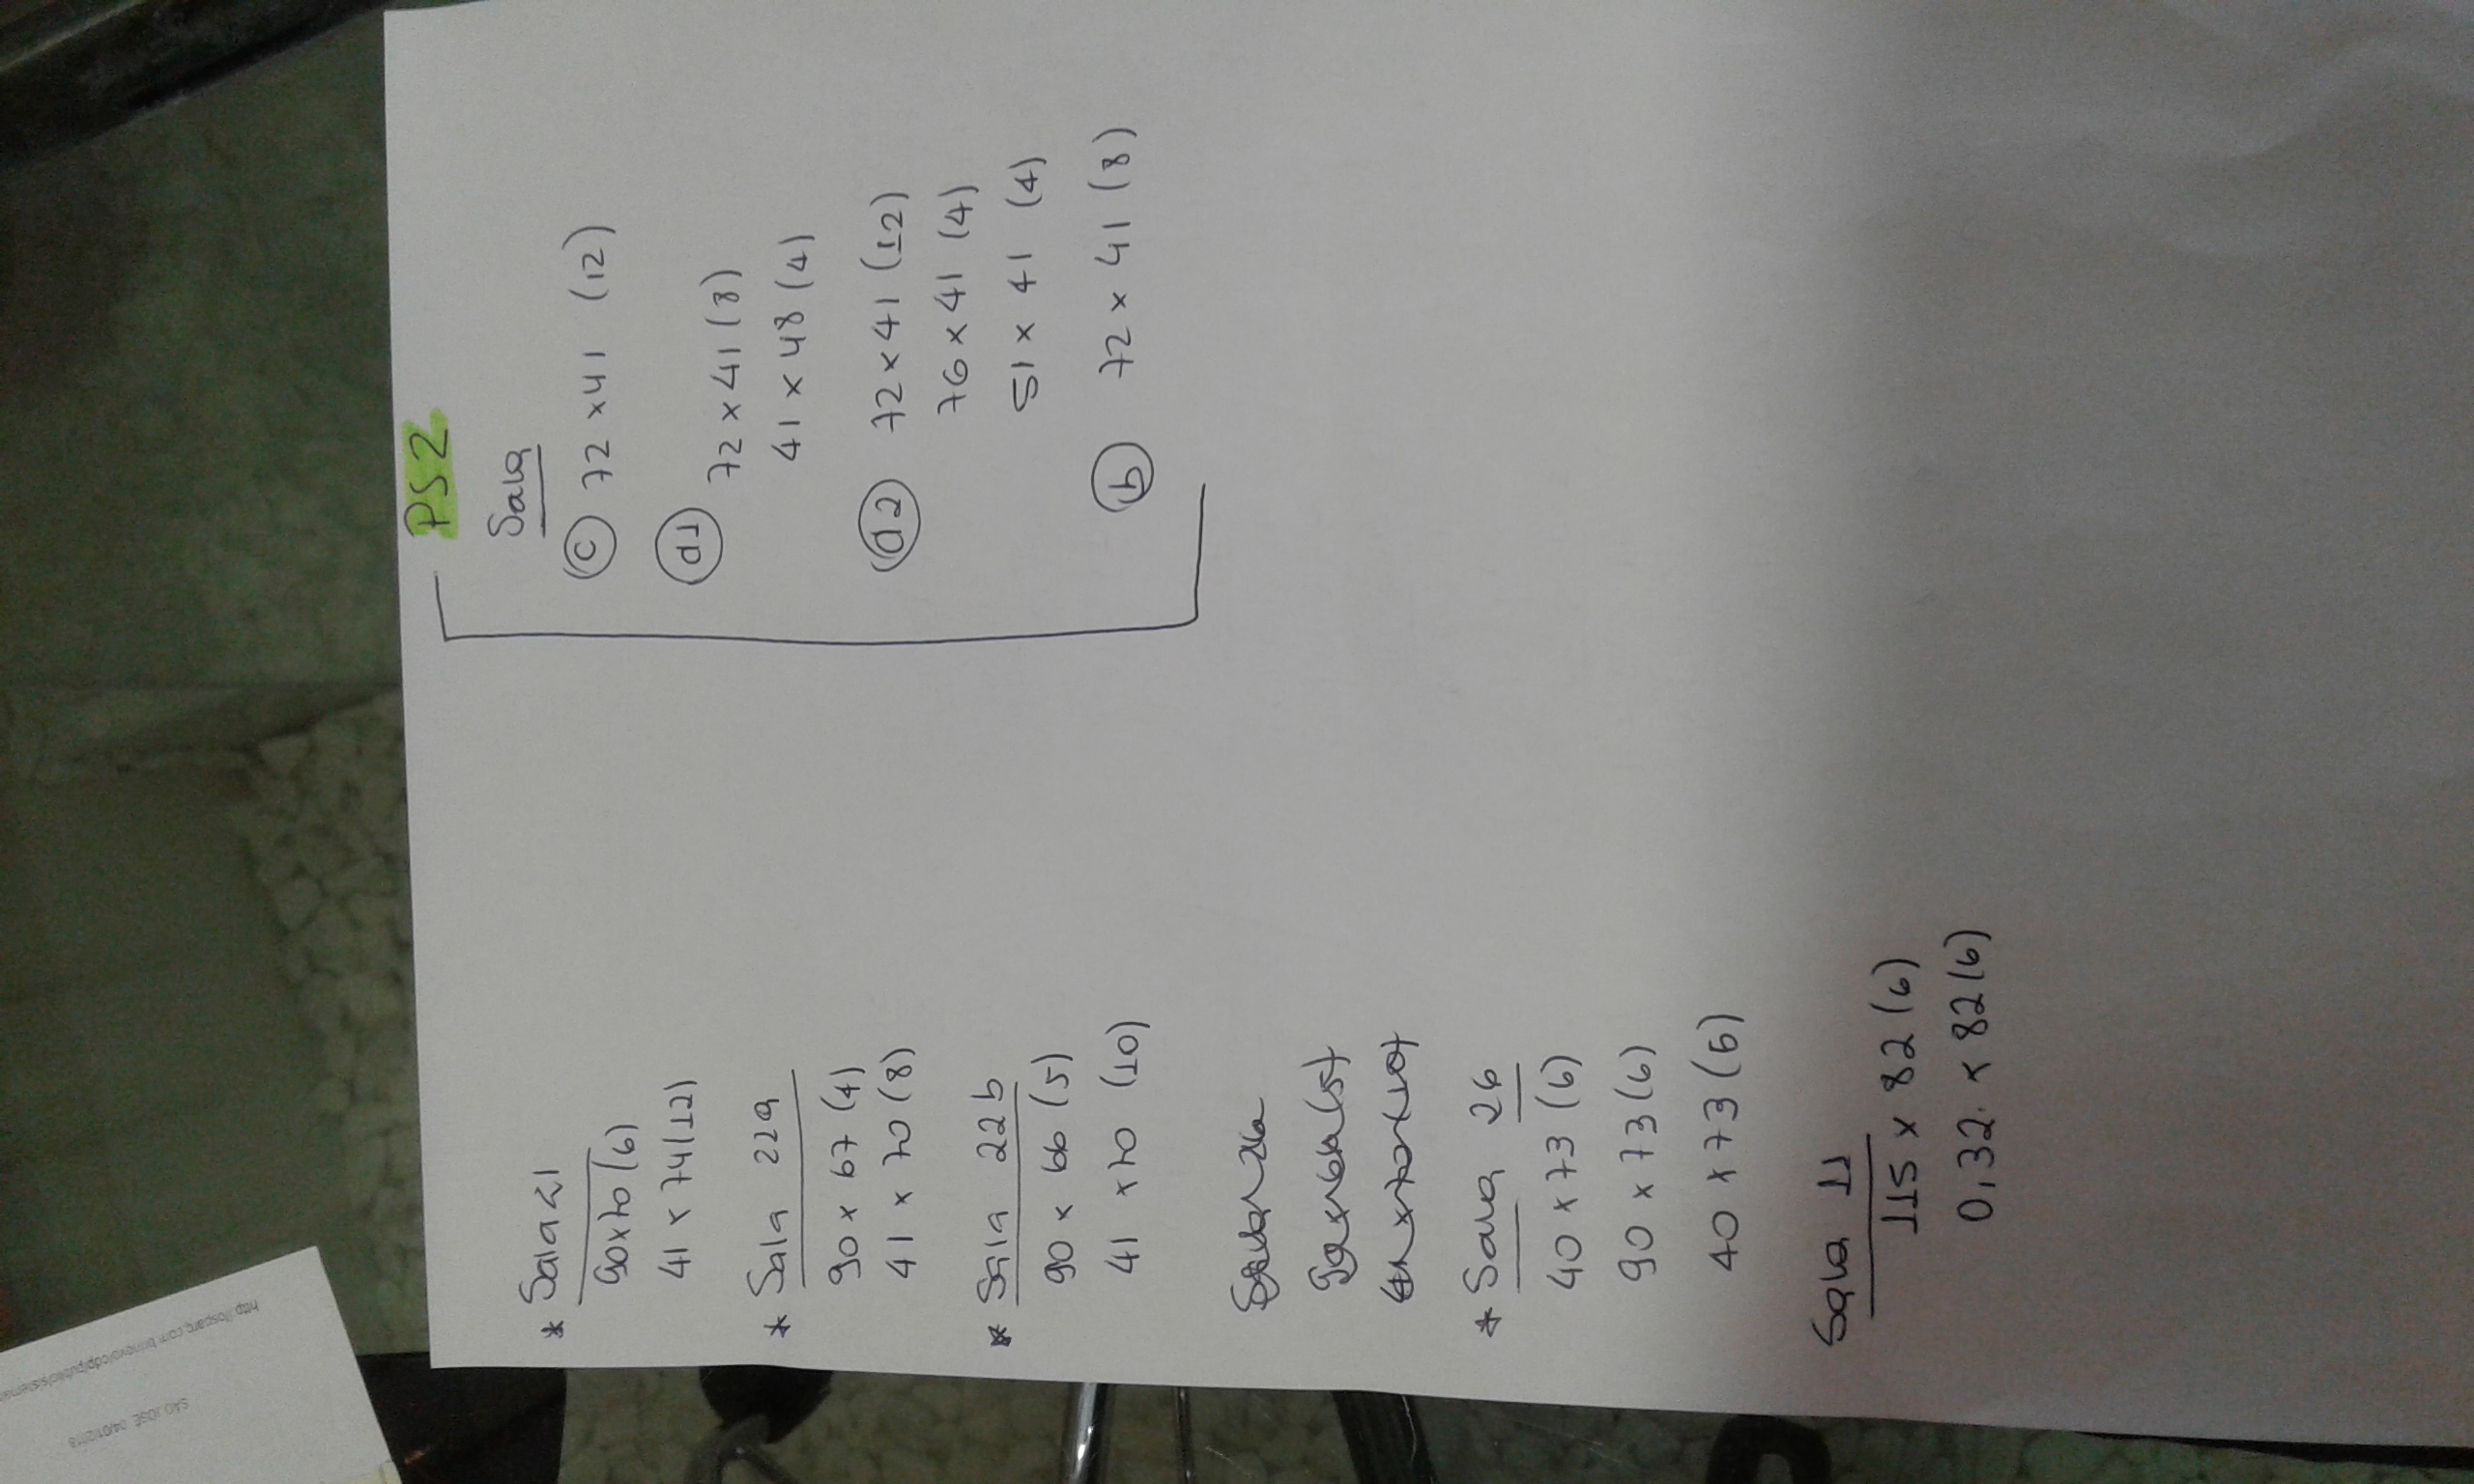 * Sala 21
90x70 (6)
41 x 74 (12)
* Sala 22a
90 x 67 (4)
41 x 70 (8)
* Sala 22b
90 x 66 (5)
41 x 70 (10)
* Sala 26
40 x 73 (6)
90 x 73 (6)
40 x 73 (6)
Sala 11
115 x 82 (6)
0,32. x 82 (6)
PS2
Sala
(c) 72 x 41 (12)
(d1) 72 x 41 (8)
41 x 48 (4)
(d2) 72 x 41 (12)
76 x 41 (4)
51 x 41 (4)
(b) 72 x 41 (8)
SÃO JOSE, 04/01/2018